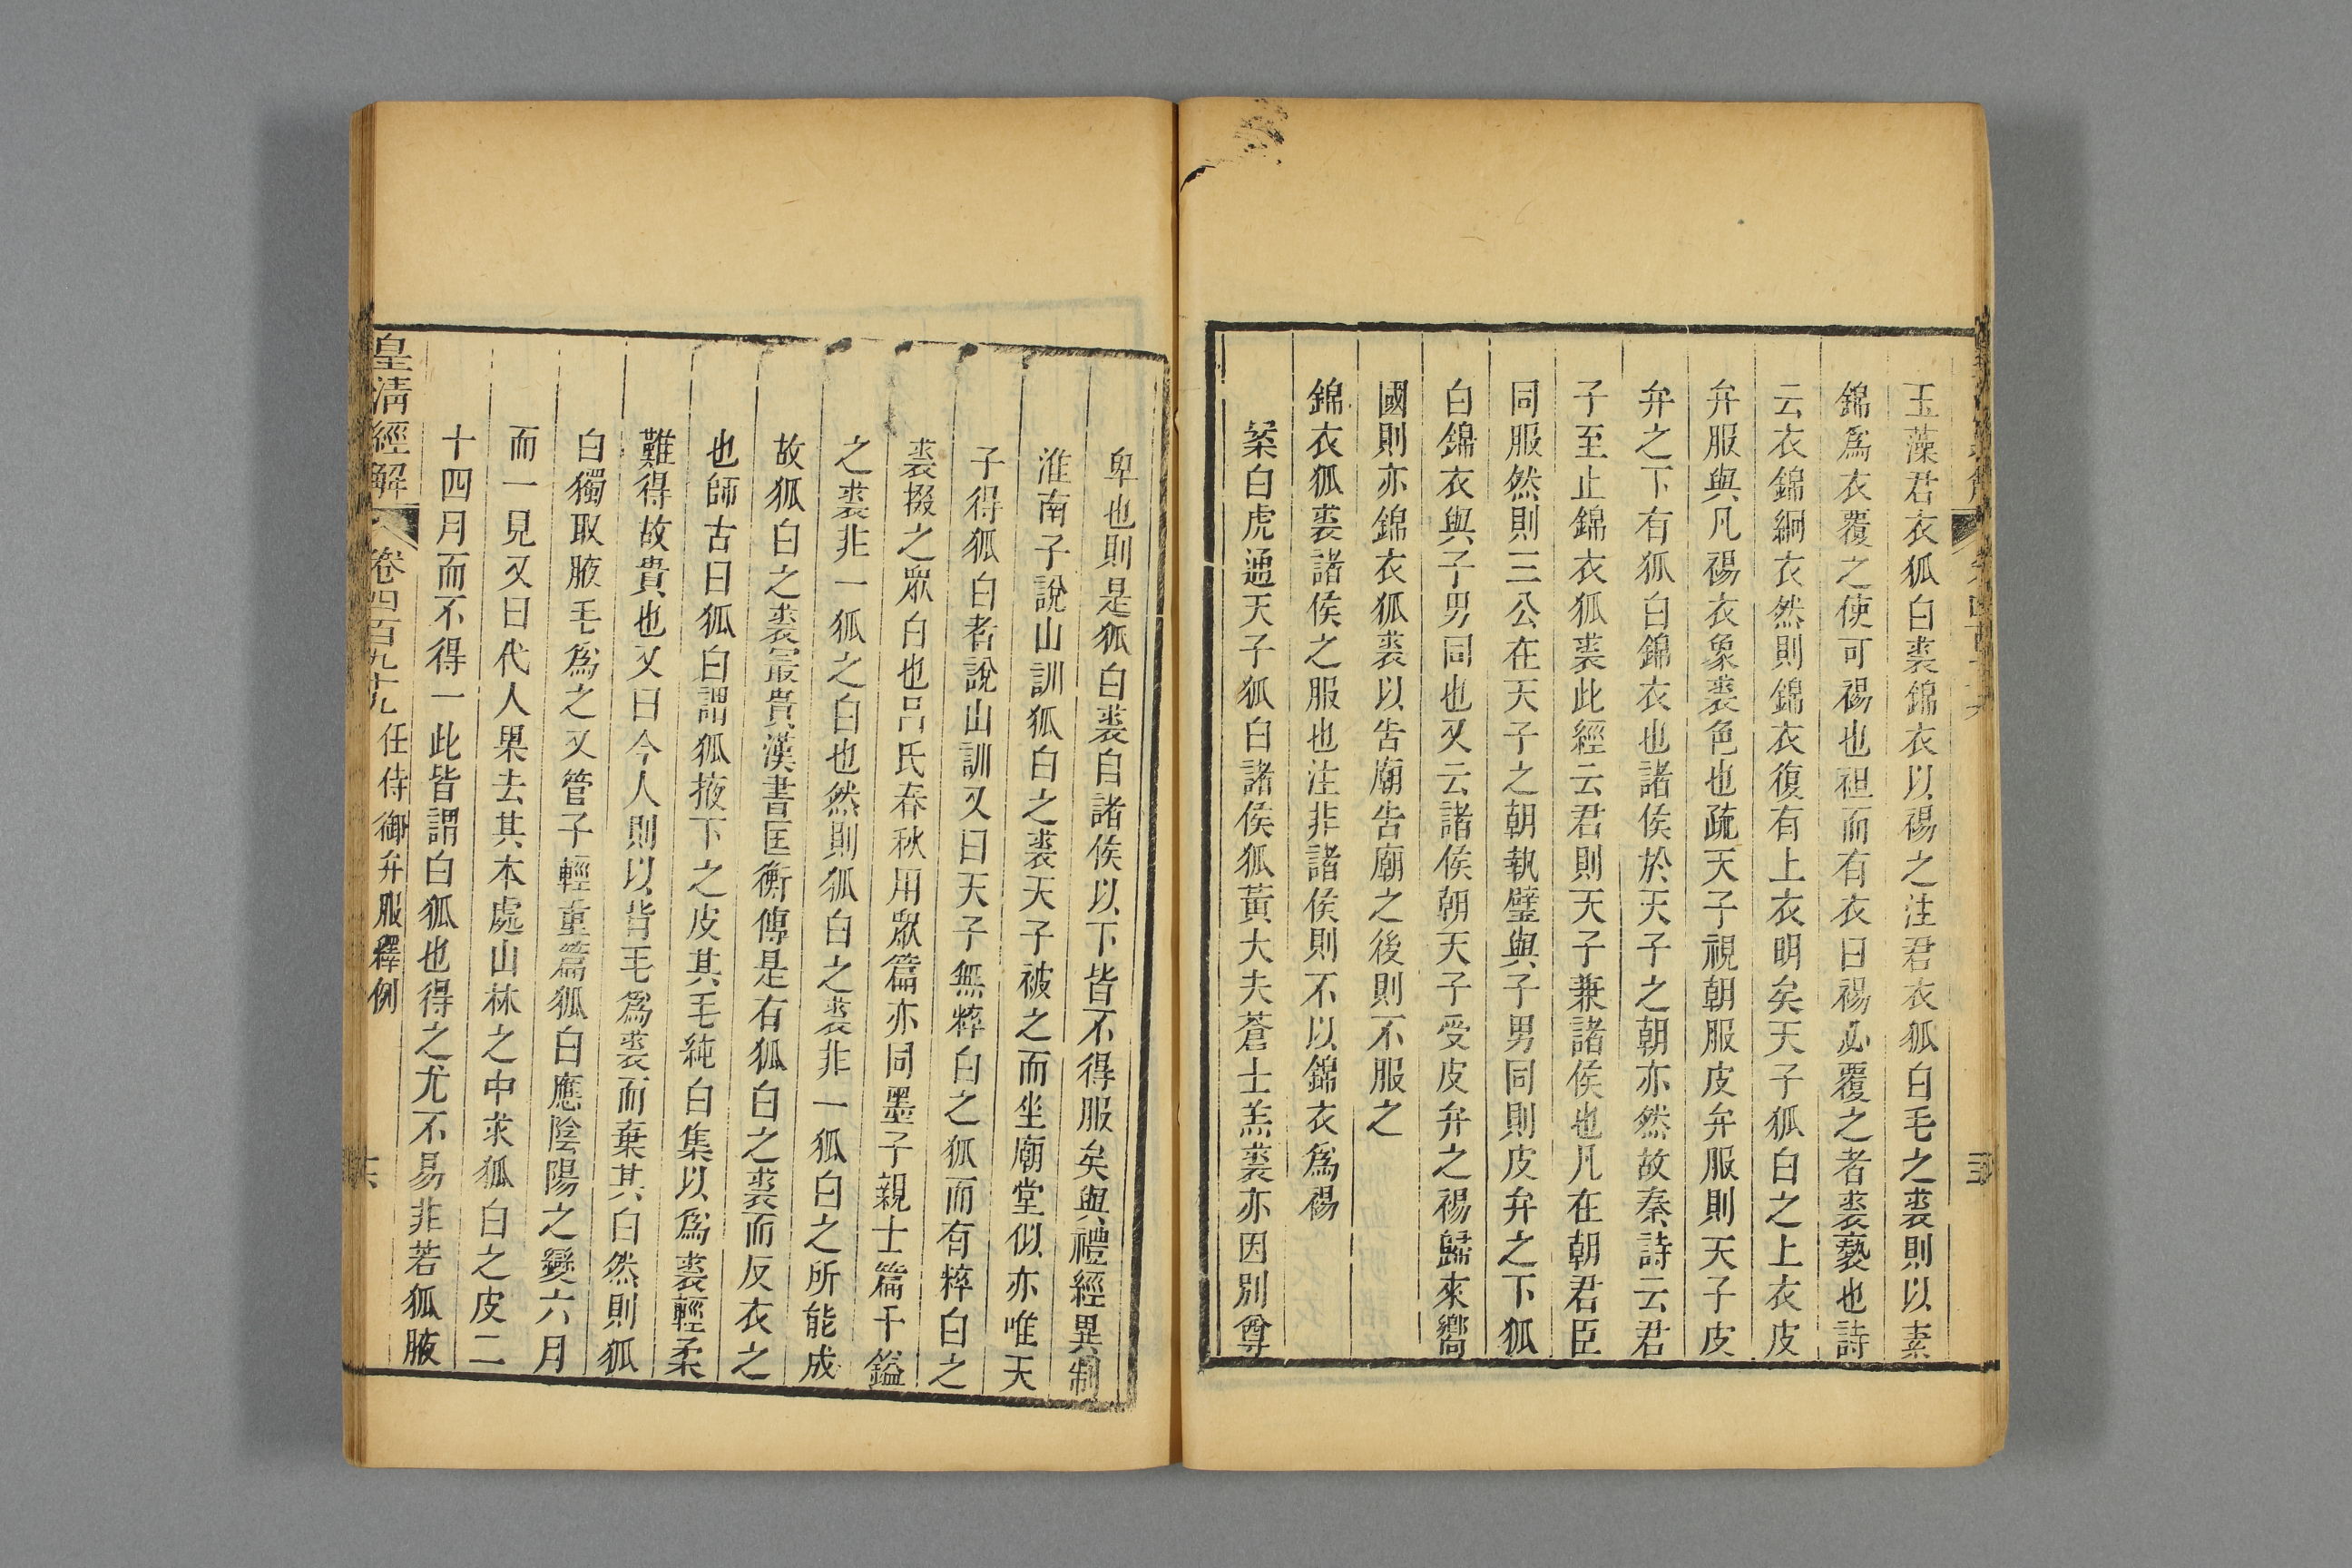 玉藻君衣狐白裘錦衣以裼之注君衣狐白毛之裘則以素
錦爲衣覆之使可裼也袒而有衣曰裼必覆之者裘褻也詩
云衣錦絅衣然則錦衣復有上衣明矣天子狐白之上衣皮
弁服與凡裼衣象裘色也疏天子視朝服皮弁服則天子皮
弁之下有狐白錦衣也諸侯於天子之朝亦然故秦詩云君
子至止錦衣狐裘此經云君則天子兼諸侯也凡在朝君臣
同服然則三公在天子之朝執璧與子男同則皮弁之下狐
白錦衣與子男同也又云諸侯朝天子受皮弁之裼歸來嚮
國則亦錦衣狐裘以告廟告廟之後則不服之
錦衣狐裘諸侯之服也注非諸侯則不以錦衣爲裼
案白虎通天子狐白諸侯狐黃大夫蒼士羔裘亦因別尊
卑也則是狐白裘自諸侯以下皆不得服矣與禮經異制
淮南子說山訓狐白之裘天子被之而坐廟堂似亦唯天
子得狐白者說山訓又曰天子無粹白之狐而有粹白之
裘掇之眾白也呂氏春秋用眾篇亦同墨子親士篇千鎰
之裘非一狐之白也然則狐白之裘非一狐白之所能成
故狐白之裘最貴漢書匡衡傳是有狐白之裘而反衣之
也師古曰狐白謂狐掖下之皮其毛純白集以爲裘輕柔
難得故貴也又曰今人則以背毛爲裘而棄其白然則狐
白獨取腋毛爲之又管子輕重篇狐白應陰陽之變六月
而一見又曰代人果去其本處山林之中求狐白之皮二
十四月而不得一此皆謂白狐也得之尤不易非若狐腋
皇清經解 卷四百九十九 任侍御弁服釋例